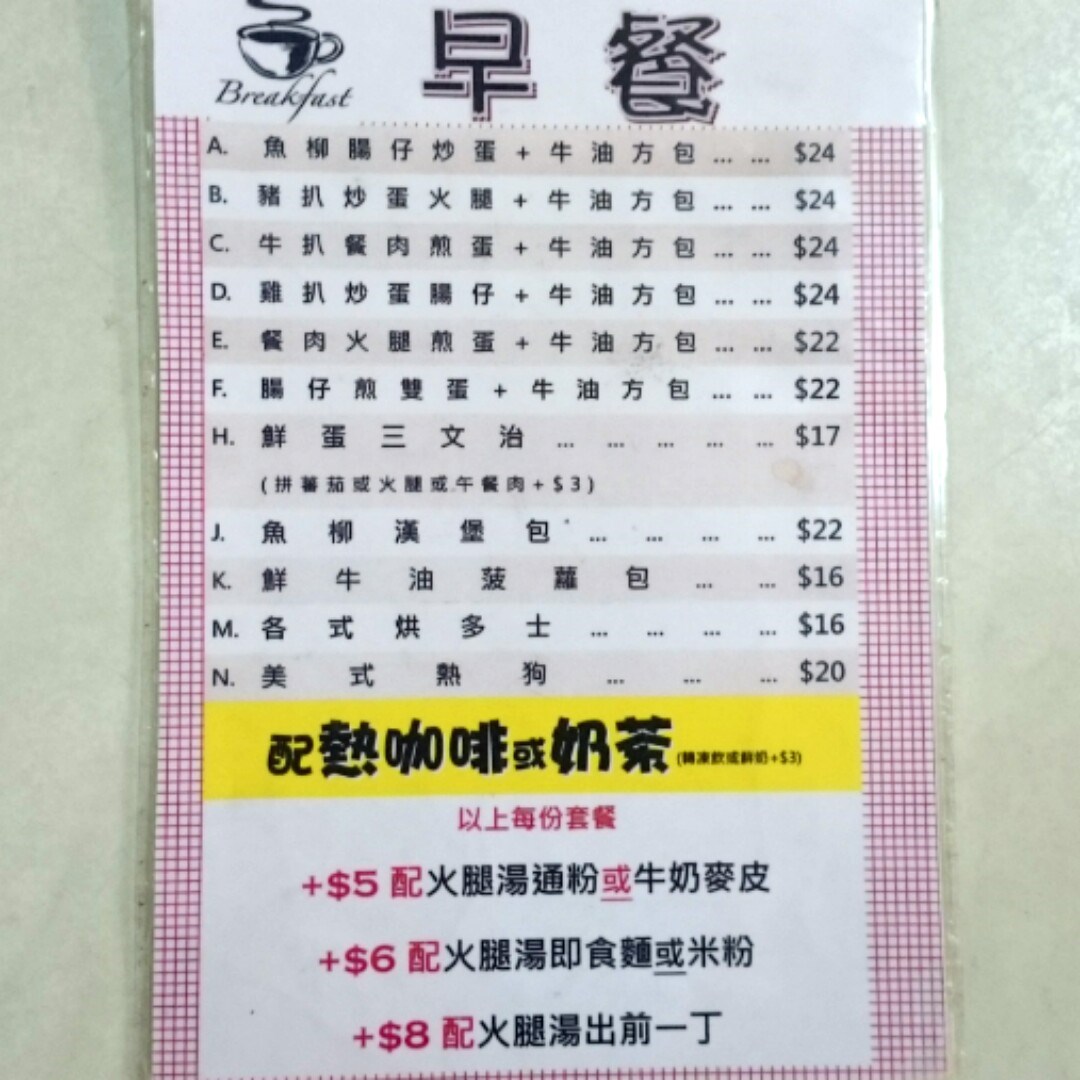 早餐
Breakfast
A. 魚柳腸仔炒蛋+牛油方包……$24
B. 豬扒炒蛋火腿+牛油方包……$24
C. 牛扒餐肉煎蛋+牛油方包……$24
D. 雞扒炒蛋腸仔+牛油方包……$24
E. 餐肉火腿煎蛋+牛油方包……$22
F. 腸仔煎雙蛋+牛油方包……$22
H. 鮮蛋三文治……………$17
(拼蕃茄或火腿或午餐肉+$3)
J. 魚柳漢堡包…………$22
K. 鮮牛油菠蘿包……$16
M. 各式烘多士…………$16
N. 美式熱狗………$20
配熱咖啡或奶茶(轉凍飲或鮮奶+$3)
以上每份套餐
+$5 配火腿湯通粉或牛奶麥皮
+$6 配火腿湯即食麵或米粉
+$8 配火腿湯出前一丁